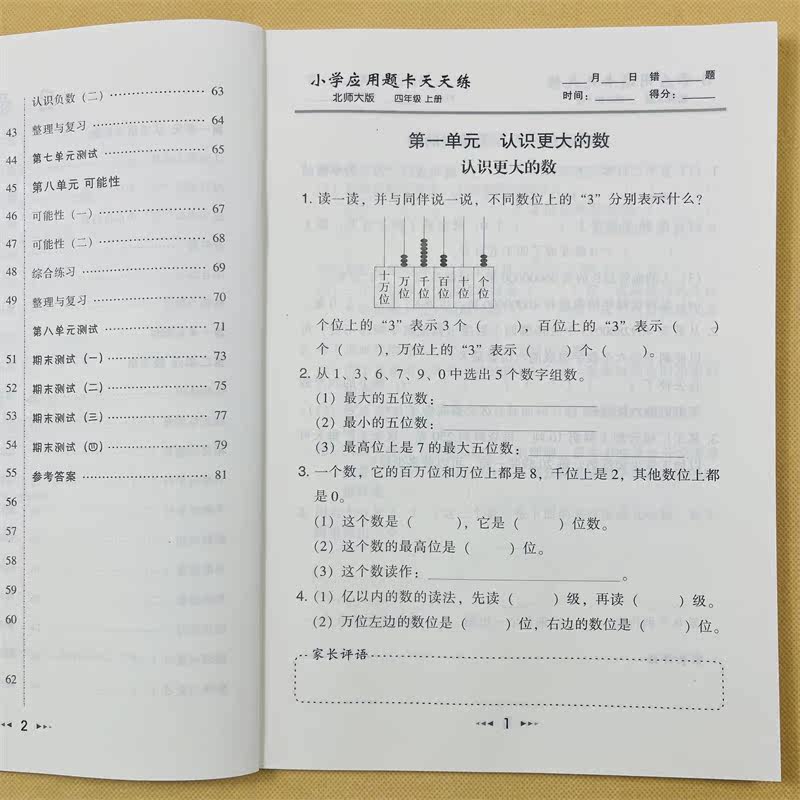 认识负数（二） 63
43 整理与复习 64
44 第七单元测试 65
45 第八单元 可能性
46 可能性（一） 67
47 可能性（二） 68
48 综合练习 69
49 整理与复习 70
第八单元测试 71
51 期末测试（一） 73
52 期末测试（二） 75
53 期末测试（三） 77
54 期末测试（四） 79
55 参考答案 81
56
57
58
59
60
62
2
小学应用题卡天天练
北师大版 四年级 上册
____月____日 错____题
时间：____ 得分：____
第一单元 认识更大的数
认识更大的数
1. 读一读，并与同伴说一说，不同数位上的“3”分别表示什么？
十万位 万位 千位 百位 十位 个位
个位上的“3”表示3个（ ），百位上的“3”表示（ ）
个（ ），万位上的“3”表示（ ）个（ ）。
2. 从1、3、6、7、9、0中选出5个数字组数。
（1）最大的五位数：____
（2）最小的五位数：____
（3）最高位上是7的最大五位数：____
3. 一个数，它的百万位和万位上都是8，千位上是2，其他数位上都
是0。
（1）这个数是（ ），它是（ ）位数。
（2）这个数的最高位是（ ）位。
（3）这个数读作：____。
4.（1）亿以内的数的读法，先读（ ）级，再读（ ）级。
（2）万位左边的数位是（ ）位，右边的数位是（ ）位。
家长评语
1